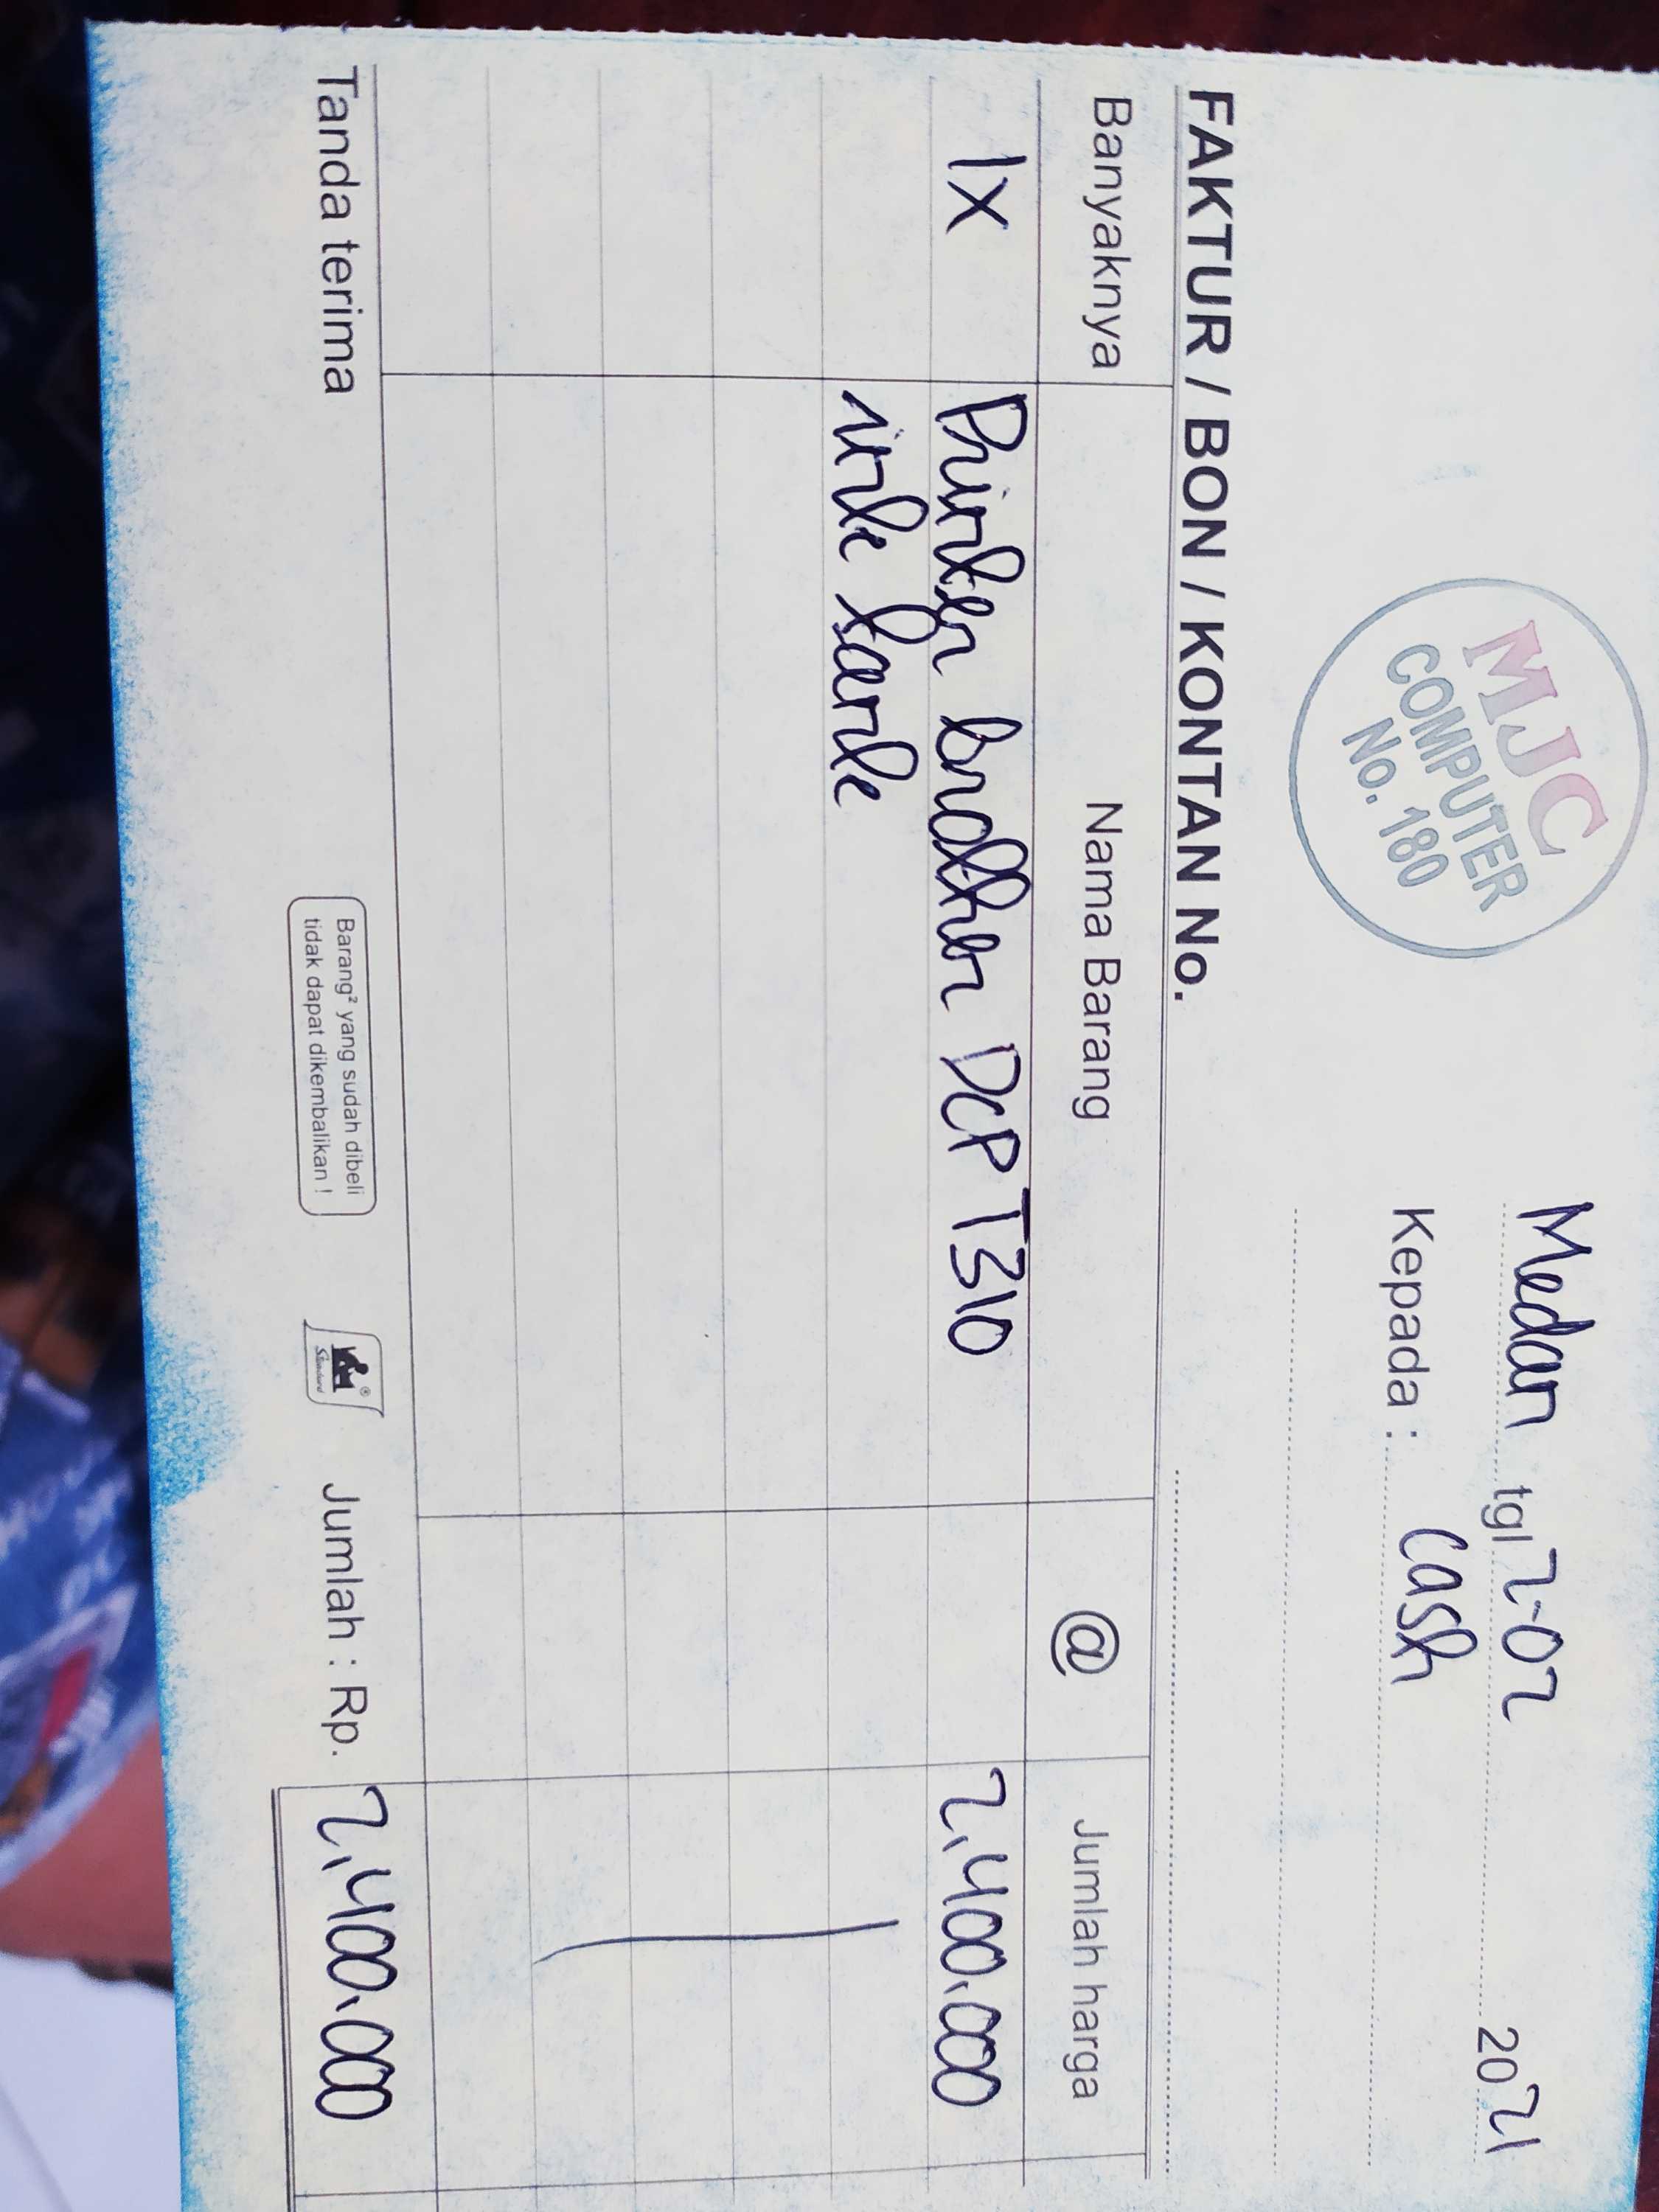 MJC
COMPUTER
No. 180
Medan tgl 2-02 2021
Kepada : Cash
FAKTUR / BON / KONTAN No.
Banyaknya Nama Barang @ Jumlah harga
1x Printer brother DCP T310 2.400.000
ink tank
Tanda terima
Barang² yang sudah dibeli
tidak dapat dikembalikan !
Standard
Jumlah : Rp. 2.400.000